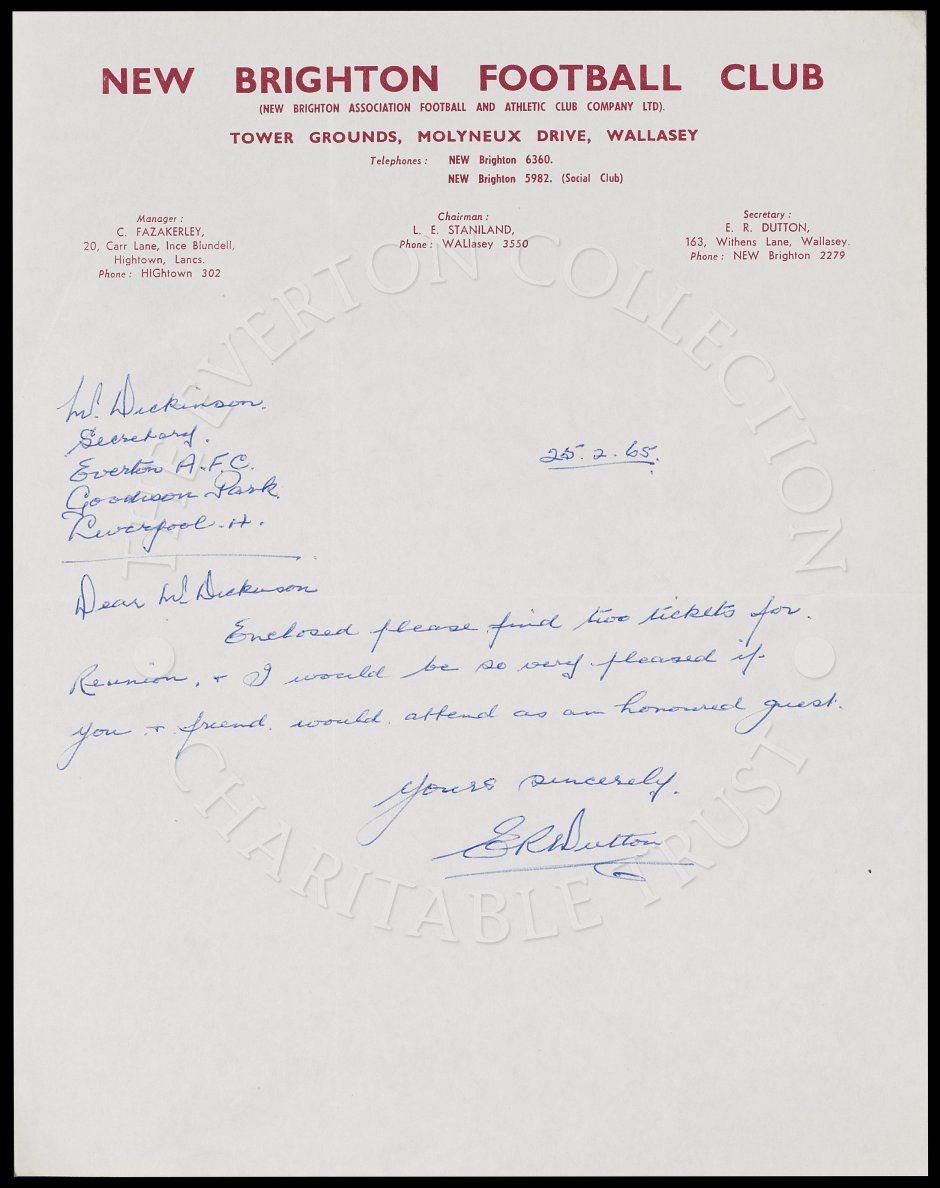 NEW BRIGHTON FOOTBALL CLUB
(NEW BRIGHTON ASSOCIATION FOOTBALL AND ATHLETIC CLUB COMPANY LTD).
TOWER GROUNDS, MOLYNEUX DRIVE, WALLASEY
Telephones : NEW Brighton 6360.
NEW Brighton 5982. (Social Club)
Manager :
C. FAZAKERLEY,
20, Carr Lane, Ince Blundell,
Hightown, Lancs.
Phone : HIGhtown 302
Chairman :
L. E. STANILAND,
Phone : WALlasey 3550
Secretary :
E. R. DUTTON,
163, Withens Lane, Wallasey.
Phone : NEW Brighton 2279
Mr. Dickinson.
Secretary.
Everton A.F.C.
Goodison Park.
Liverpool. 4.
25. 2. 65.
Dear Mr. Dickinson
Enclosed please find two tickets for
Reunion, + I would be so very pleased if
you + friend would attend as an honoured guest.
Yours sincerely.
E R Dutton
THE EVERTON COLLECTION
CHARITABLE TRUST